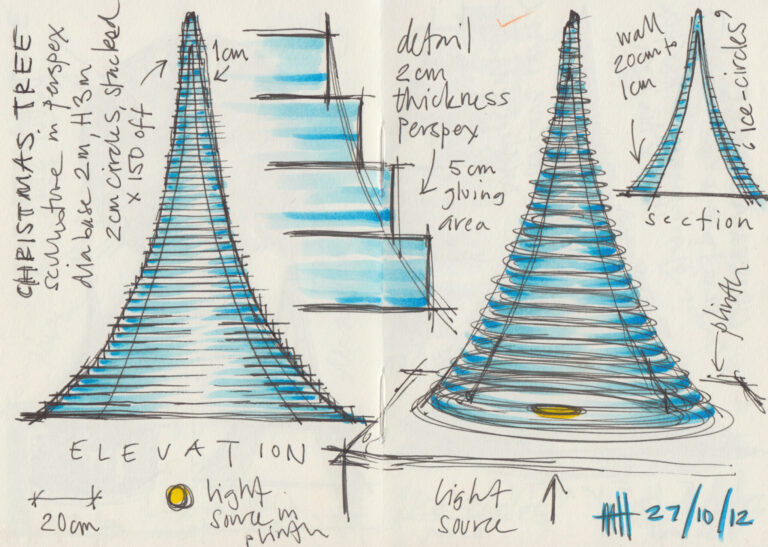 CHRISTMAS TREE
sculpture in perspex
dia base 2m, H3m
2cm circles, stacked
x 150 off
1cm
detail
2cm
thickness
Perspex
5cm
gluing
area
wall
20cm to
1cm
'ice-circles'
section
plinth
ELEVATION
20cm
light
source in
plinth
light
source
27/10/12